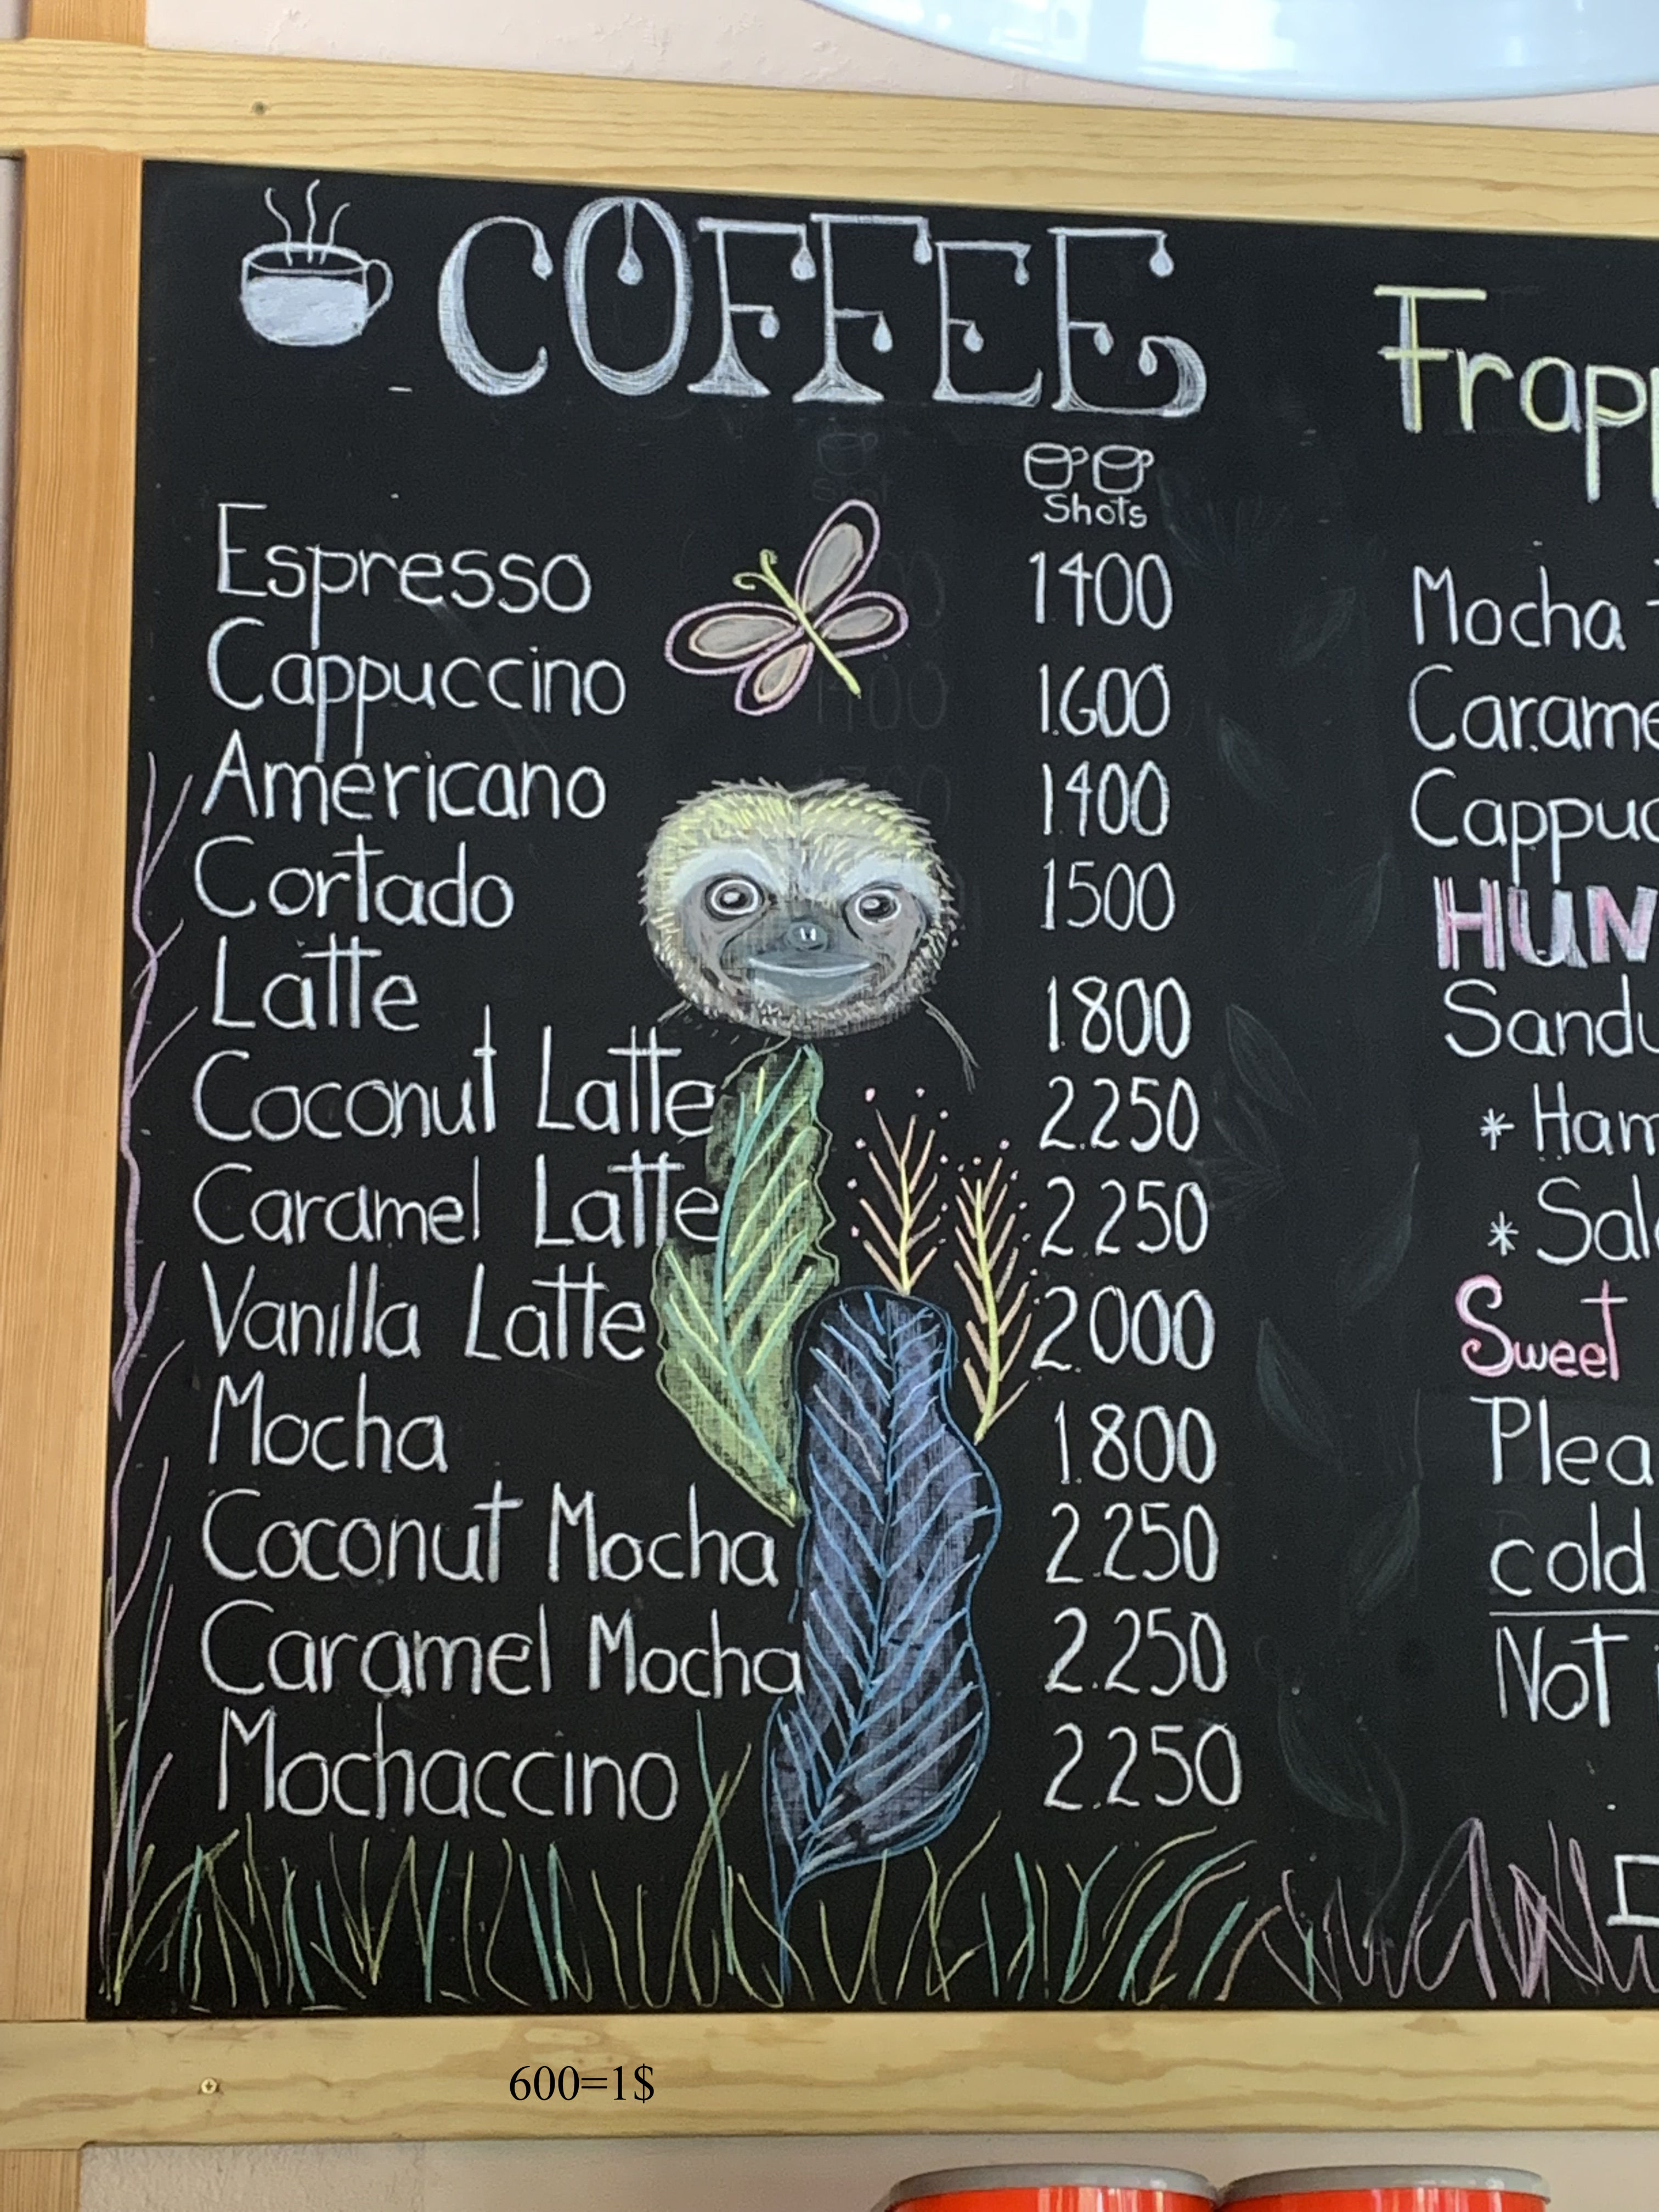 COFFEE
Shots
Espresso 1400
Cappuccino 1.600
Americano 1400
Cortado 1500
Latte 1.800
Coconut Latte 2.250
Caramel Latte 2.250
Vanilla Latte 2.000
Mocha 1.800
Coconut Mocha 2.250
Caramel Mocha 2.250
Mochaccino 2.250
Mocha
Sweet
cold
Not
600=1$